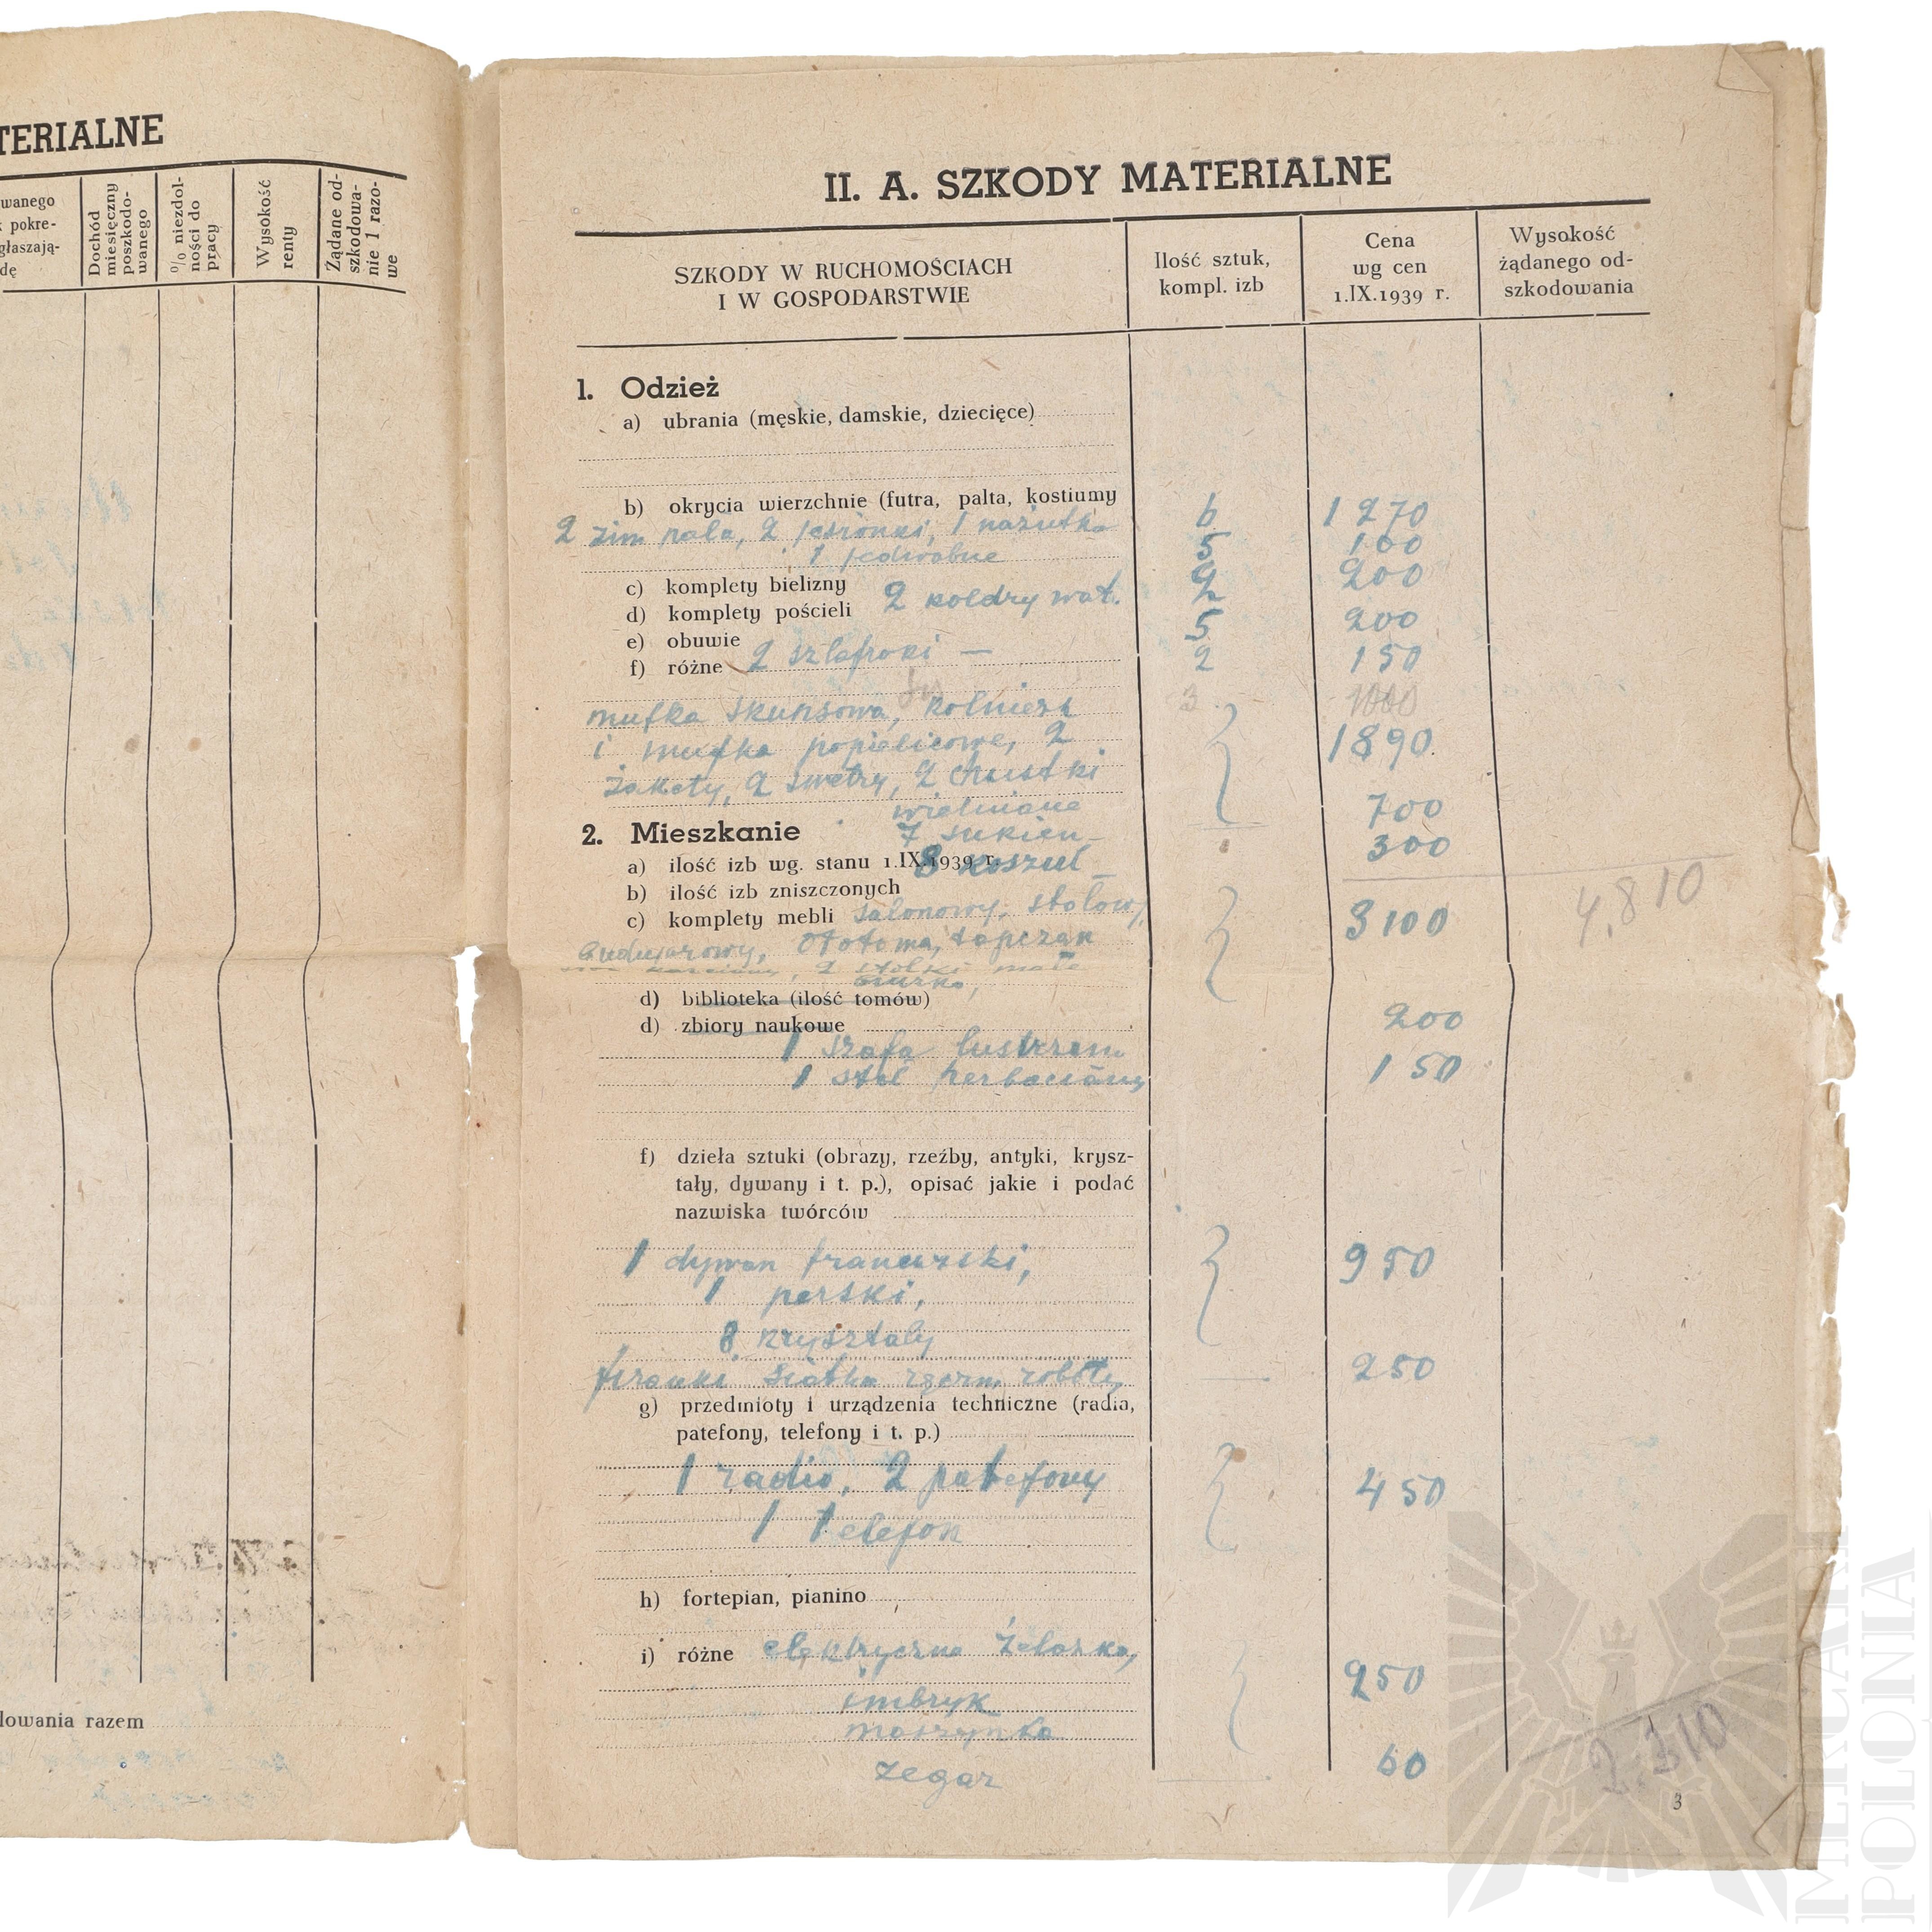 TERIALNE
wanego
pokre-
głaszają-
dę
Dochód miesięczny poszkodo- wanego
% niezdol- ności do pracy
Wysokość renty
Żądane od- szkodowa- nie 1 razo- we
lowania razem
II. A. SZKODY MATERIALNE
SZKODY W RUCHOMOŚCIACH
I W GOSPODARSTWIE
Ilość sztuk,
kompl. izb
Cena
wg cen
1.IX.1939 r.
Wysokość
żądanego od-
szkodowania
1. Odzież
a) ubrania (męskie, damskie, dziecięce)
b) okrycia wierzchnie (futra, palta, kostiumy 6 1270
2 zim pala, 2 jesionki, 1 narzutka 5 100
1 jedwabne 2 200
c) komplety bielizny
d) komplety pościeli 2 kołdry wat. 5 200
e) obuwie
f) różne 2 szlafroki — 2 150
3 1000
mufka skunsowa, kołnierz
i mufka popielicowe, 2 1890.
żakety, 2 swetry, 2 chustki
wełniane 700
2. Mieszkanie 7 sukien — 300
a) ilość izb wg. stanu 1.IX.1939 r. 8 koszul —
b) ilość izb zniszczonych 4.810
c) komplety mebli salonowy, stołowy 3100
buduarowy, ototoma, tapczan
2 stołki małe
biurko,
d) biblioteka (ilość tomów) 200
d) zbiory naukowe
1 szafa lustrzan 150
1 stół herbaciany
f) dzieła sztuki (obrazy, rzeźby, antyki, krysz-
tały, dywany i t. p.), opisać jakie i podać
nazwiska twórców
1 dywan francuski, 950
1 perski,
8 kryształy
firanki siatka ręczn. roboty 250
g) przedmioty i urządzenia techniczne (radia,
patefony, telefony i t. p.)
1 radio, 2 patefony 450
1 telefon
h) fortepian, pianino
i) różne elektryczne żelazko, 250
imbryk
maszynka
zegar 60
2.310
3
MERCARI
POLONIA